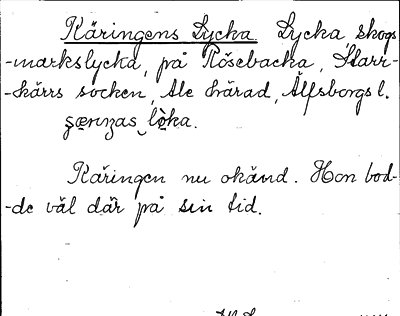 Käringens Lycka. Lycka, skogs
-markslycka, på Rösebacka, Starr-
-kärrs socken, Ale härad, Älfsborgs l.
Käringen nu okänd. Hon bod-
-de väl där på sin tid.